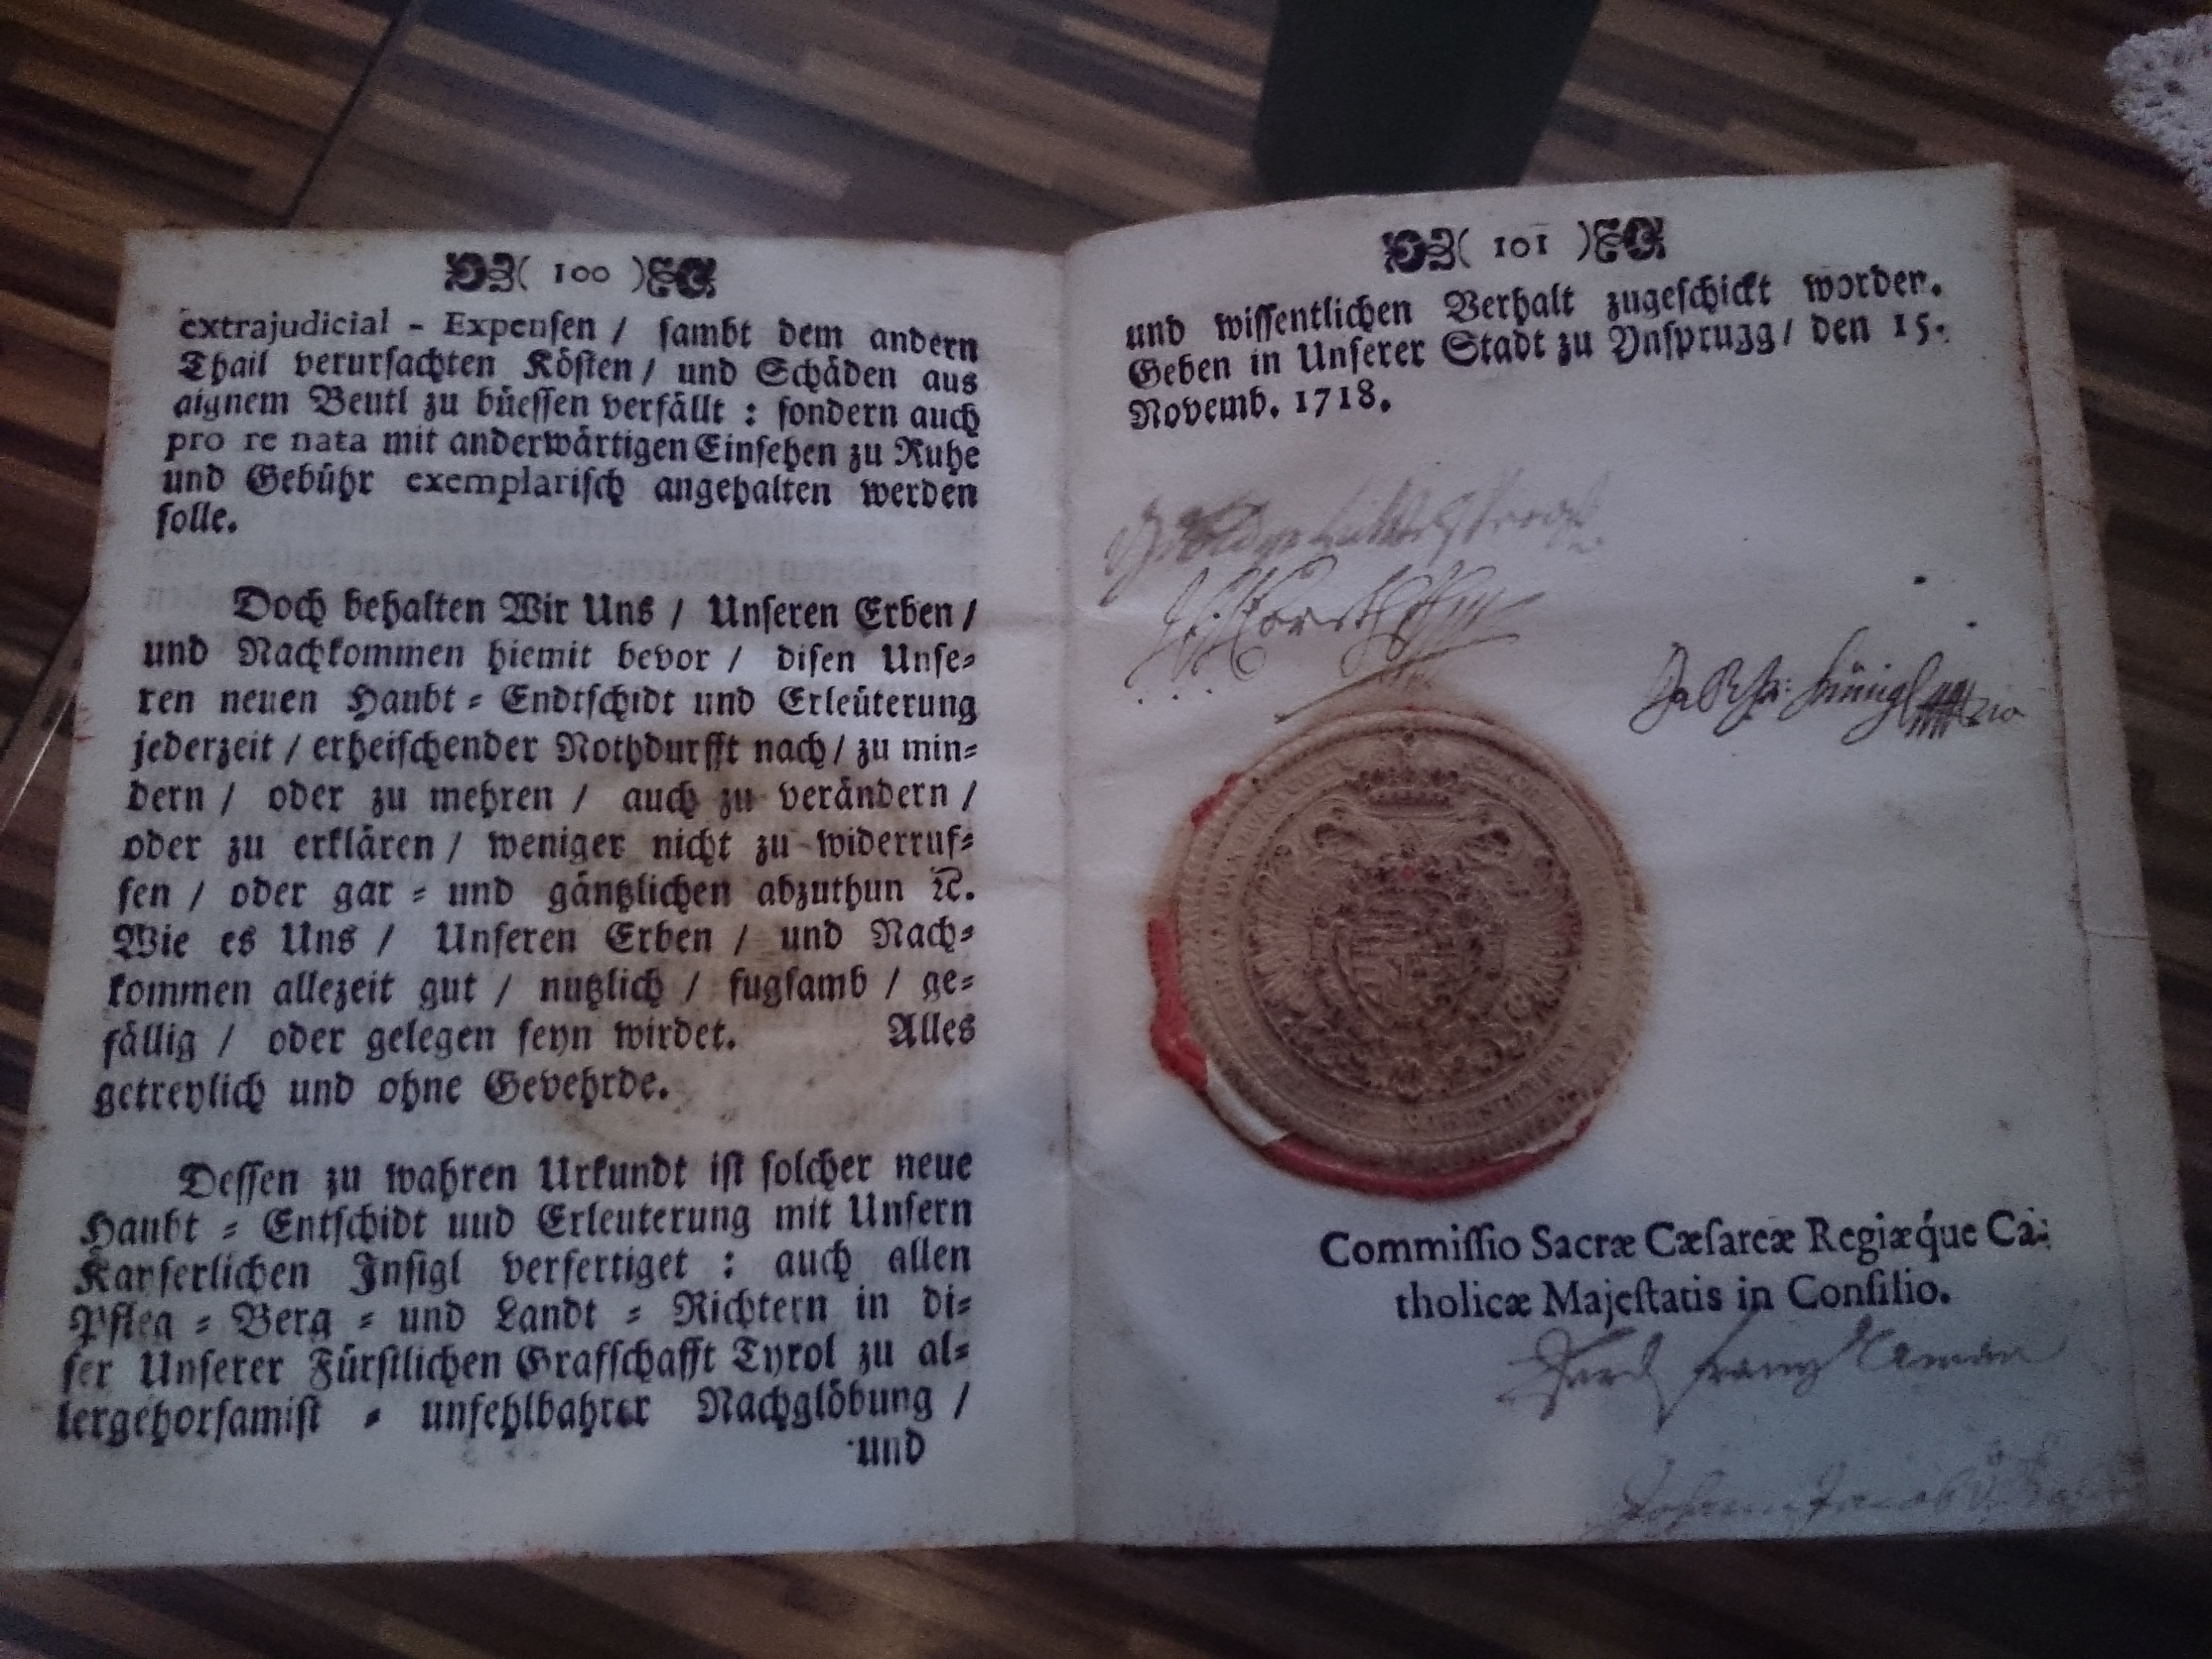 ( 100 )
extrajudicial - Expensen / sambt dem andern
Thail verursachten Kösten / und Schäden aus
aignem Beutl zu büessen verfällt : sondern auch
pro re nata mit anderwärtigen Einsehen zu Ruhe
und Gebühr exemplarisch angehalten werden
solle.
Doch behalten Wir Uns / Unseren Erben /
und Nachkommen hiemit bevor / disen Unse-
ren neuen Haubt - Endtschidt und Erleüterung
jederzeit / erheischender Nothdurfft nach / zu min-
dern / oder zu mehren / auch zu verändern /
oder zu erklären / weniger nicht zu widerruf-
fen / oder gar - und gäntzlichen abzuthun ꝛc.
Wie es Uns / Unseren Erben / und Nach-
kommen allezeit gut / nutzlich / fugsamb / ge-
fällig / oder gelegen seyn wirdet. Alles
getreylich und ohne Gevehrde.
Dessen zu wahren Urkundt ist solcher neue
Haubt - Entschidt und Erleuterung mit Unsern
Kayserlichen Insigl verfertiget : auch allen
Pfleg - Berg - und Landt - Richtern in di-
ser Unserer Fürstlichen Grafschafft Tyrol zu al-
lergehorsamist - unfehlbahrer Nachglöbung /
und
( 101 )
und wissentlichen Verhalt zugeschickt worden.
Geben in Unserer Stadt zu Ynsprugg / den 15.
Novemb. 1718.
Commissio Sacræ Cæsareæ Regiæq́ue Ca-
tholicæ Majestatis in Consilio.
franz
Johann Jacob